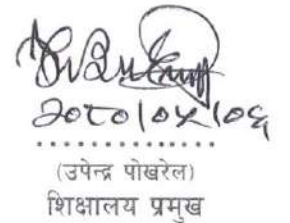 २०८०।०४।०६
...............
(उपेन्द्र पोखरेल)
शिक्षालय प्रमुख